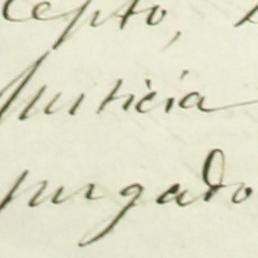 cepto,
Justicia
purgado